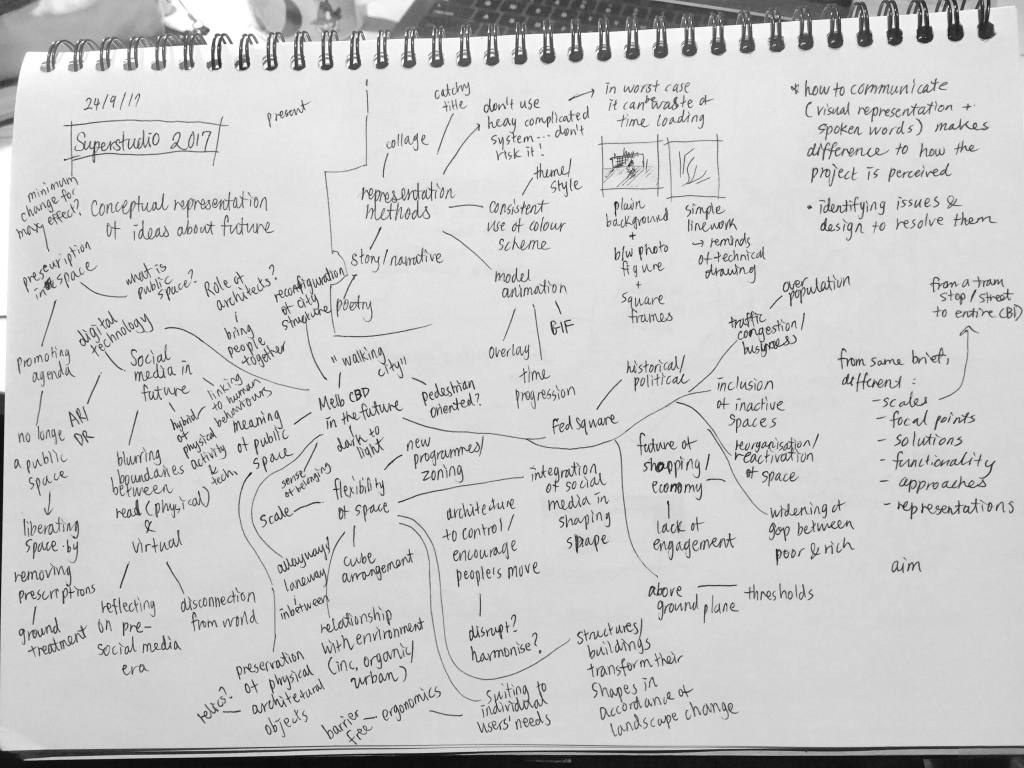 24/9/17
Superstudio 2017
present
Conceptual representation
of ideas about future
minimum
change for
max effect?
prescription
in space
what is
public
space?
promoting
agenda
no longe
a public
space
liberating
space by
removing
prescriptions
ground
treatment
digital
technology
AR/
DR
Social
media in
future
blurring
boundaries
between
real (physical)
&
virtual
reflecting
on pre-
social media
era
disconnection
from world
hybrid
of
physical
activity
&
tech.
linking
to human
behaviours
Role of
architects?
bring
people
together
reconfiguration
of city
structure
meaning
of public
space
Melb CBD
in the future
"walking
city"
pedestrian
oriented?
dark to
light
sense
of belonging
collage
catchy
title
representation
methods
story/narrative
poetry
don't use
heavy complicated
system... don't
risk it!
in worst case
it can be waste of
time loading
theme/
style
consistent
use of colour
scheme
model
animation
overlay
time
progression
GIF
plain
background
+
b/w photo
figure
+
square
frames
simple
linework
→ reminds
of technical
drawing
* how to communicate
(visual representation +
spoken words) makes
difference to how the
project is perceived
• identifying issues &
design to resolve them
from a tram
stop/street
to entire CBD
from same brief,
different:
- scales
- focal points
- solutions
- functionality
- approaches
- representations
aim
Fed Square
historical/
political
traffic
congestion/
busyness
over
population
inclusion
of inactive
spaces
reorganisation/
reactivation
of space
widening of
gap between
poor & rich
future of
shopping/
economy
lack of
engagement
above
ground plane
thresholds
flexibility
of space
scale
new
programmes/
zoning
integration
of social
media in
shaping
space
architecture
to control/
encourage
people's move
disrupt?
harmonise?
alleyways/
laneway
inbetween
cube
arrangement
relationship
with environment
(inc. organic/
urban)
preservation
of physical
architectural
objects
relics?
barrier
free
ergonomics
suiting to
individual
users' needs
structures/
buildings
transform their
shapes in
accordance of
landscape change